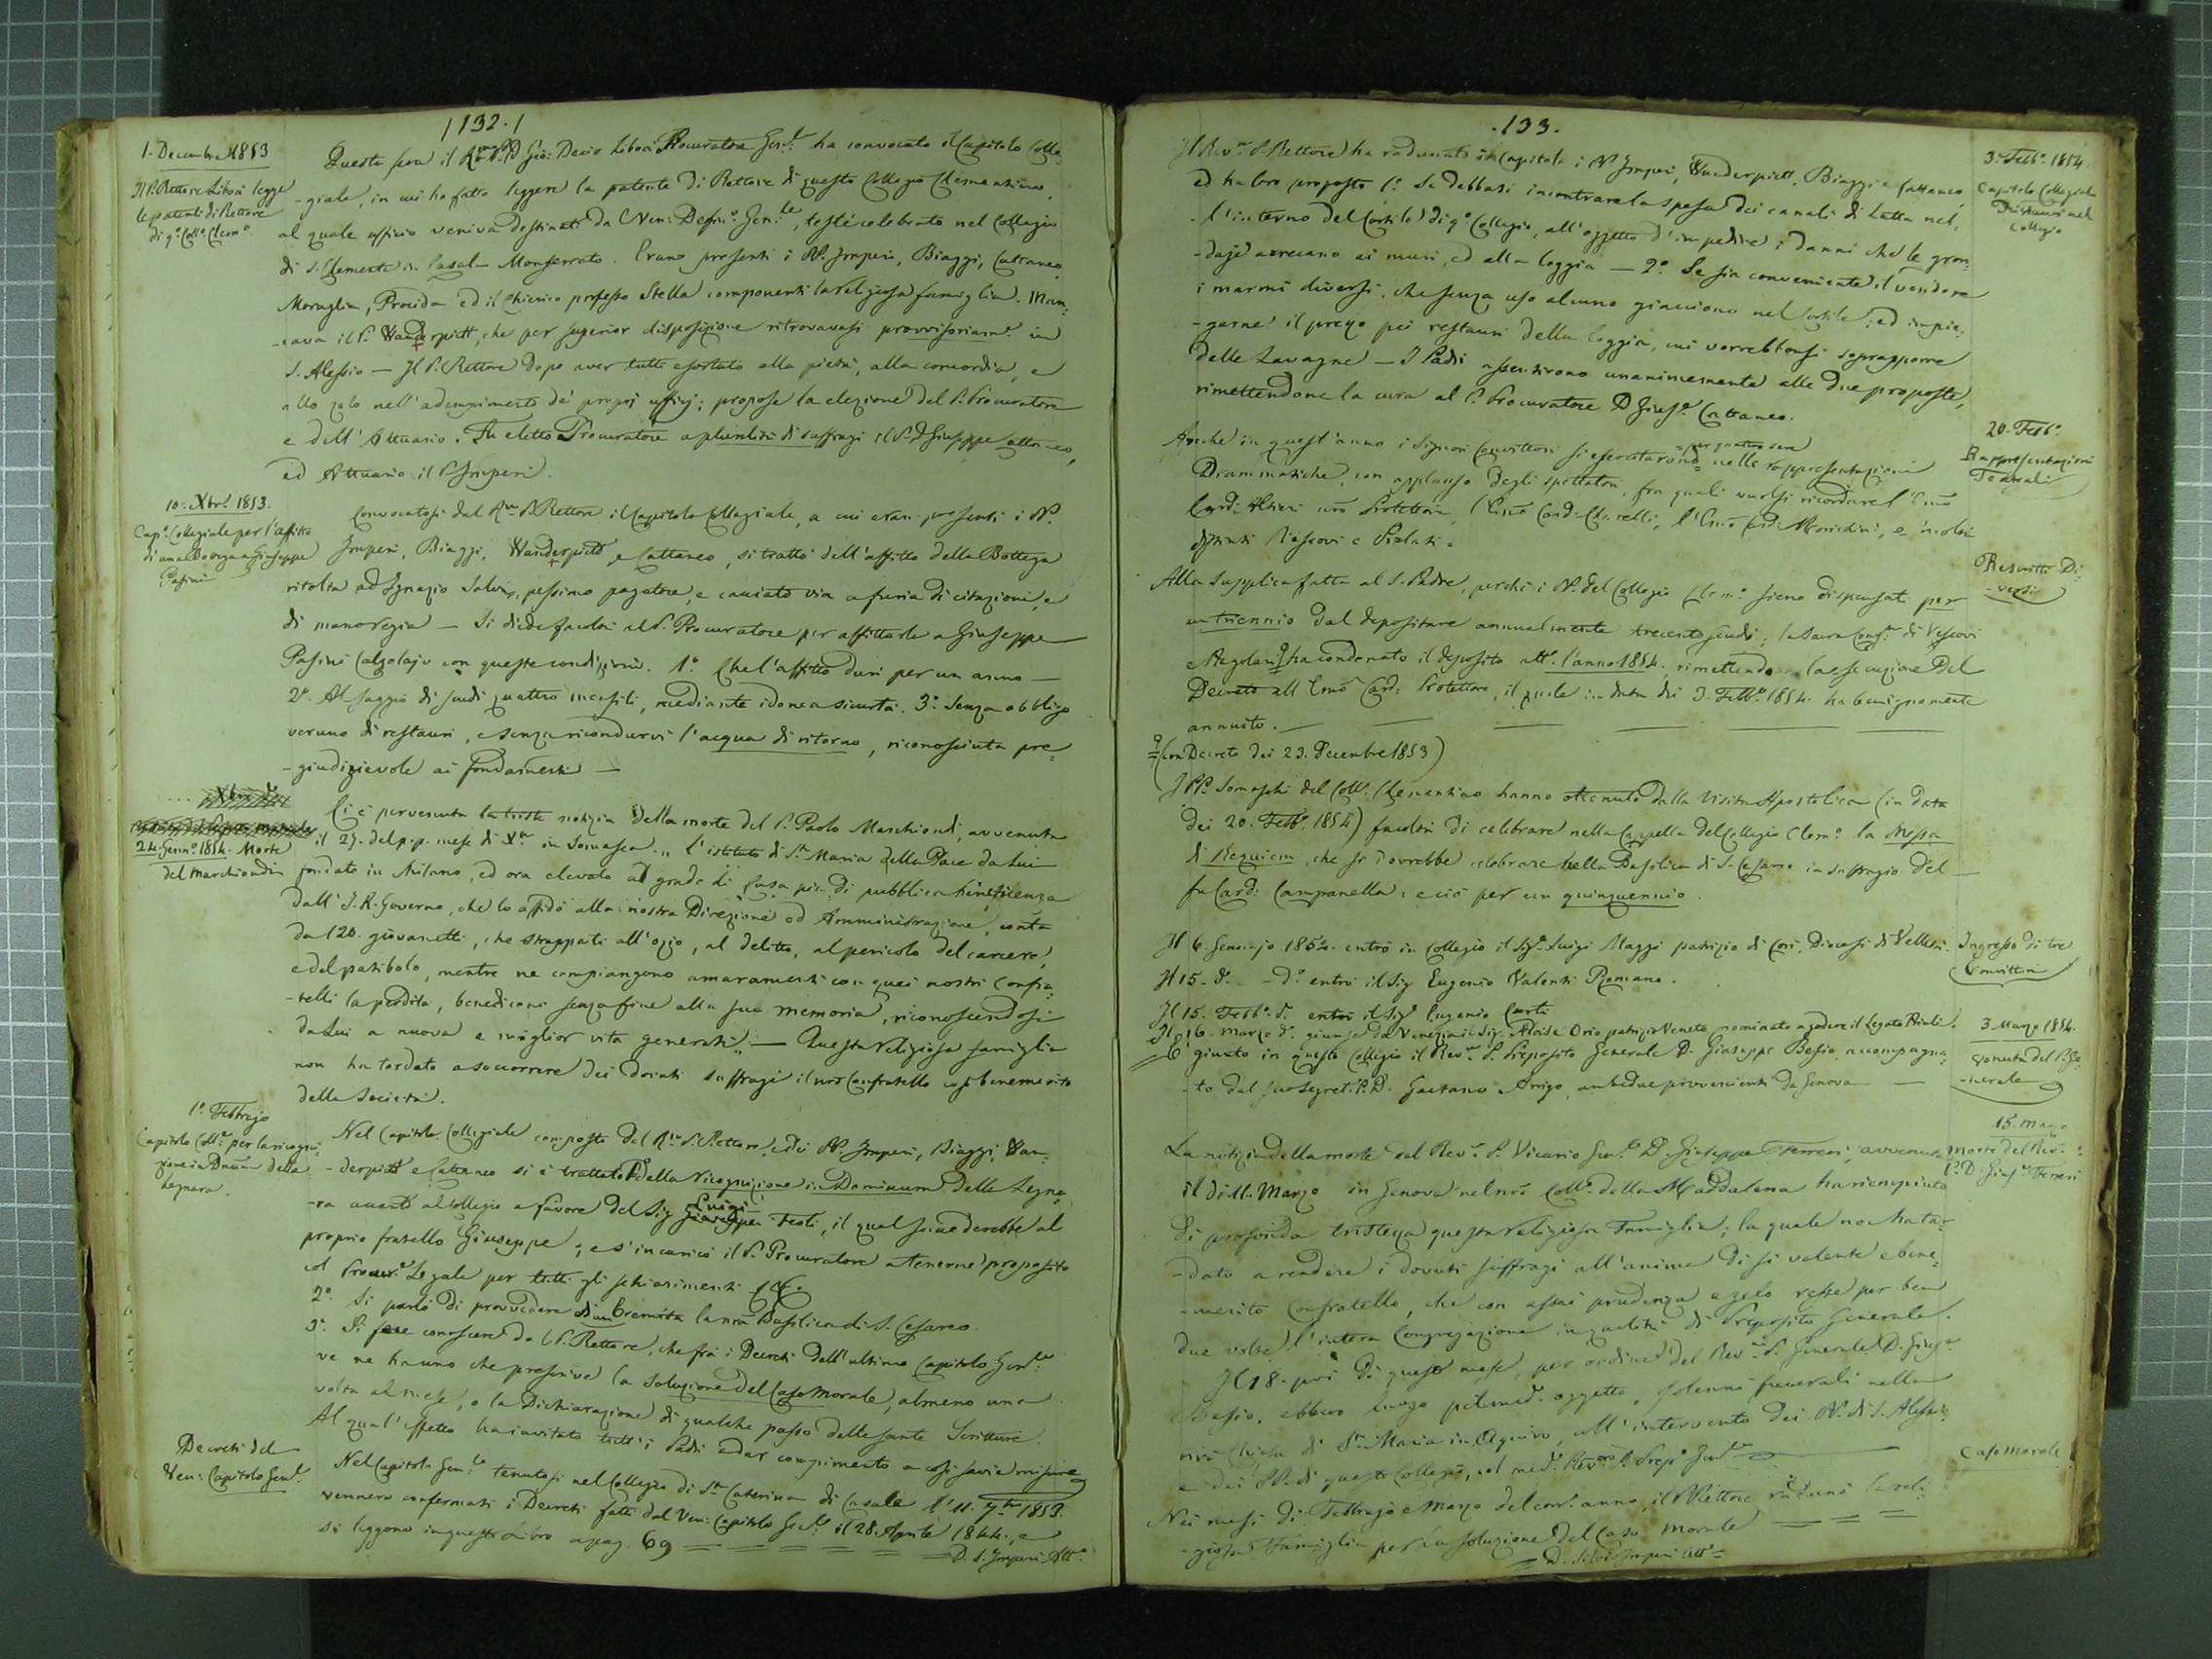 132.
1. Decembre 1853
Il P. Rettore Libois legge
le patenti di Rettore
di q.o Coll.o Clem.o
Questa sera il R.mo P. D. Gio: Decio Libois Procuratore Gen.le ha convocato il Capitolo Colle-
-giale, in cui ha fatto leggere la patente di Rettore di questo Collegio Clementino,
al quale uffizio veniva destinato dal Ven: Defin.o Gen.le, testè celebrato nel Collegio
di S. Clemente in Casal-Monferrato. Erano presenti i PP. Imperi, Biaggi, Cattaneo,
Moraglia, Procida ed il Chierico professo Stella componenti la religiosa famiglia. Man-
-cava il P. Wanderpitt, che per superior disposizione ritrovavasi provvisoriam.e in
S. Alessio — Il P. Rettore dopo aver tutti esortato alla pietà, alla concordia, e
allo zelo nell'adempimento de' proprj uffizj; propose la elezione del P. Procuratore
e dell'Attuario. Fu eletto Procuratore a pluralità di suffragi il P. D. Giuseppe Cattaneo,
ed Attuario il P. Imperi.
10. Xbre 1853.
Cap.o Collegiale per l'affitto
di una Bottega a Giuseppe
Pasini
Convocatosi dal R.mo P. Rettore il Capitolo Collegiale, a cui eran presenti i PP.
Imperi, Biaggi, Wanderpitt e Cattaneo, si trattò dell'affitto della Bottega
ritolta ad Ignazio Salvi, pessimo pagatore, e cacciato via a furia di citazioni, e
di manoregia — Si diede facoltà al P. Procuratore per affittarla a Giuseppe
Pasini Calzolajo con queste condizioni. 1.o Che l'affitto duri per un anno —
2.o Al saggio di scudi quattro mensili, mediante idonea sicurtà. 3.o Senza obbligo
veruno di restauri, e senza ricondurvi l'acqua di ritorno, riconosciuta pre-
-giudizievole ai fondamenti —
24. Genn.o 1854. Morte
del Marchiondi
Ci è pervenuta la triste notizia della morte del P. Paolo Marchiondi, avvenuta
il 29. del p.p. mese di X.re in Somasca. „ L'istituto di S.a Maria della Pace da Lui
fondato in Milano, ed ora elevato al grado di Casa pia di pubblica beneficenza
dall'I. R. Governo, che lo affidò alla nostra Direzione ed Amministrazione, conta
da 120. giovanetti, che strappati all'ozio, al delitto, al pericolo del carcere,
e del patibolo, mentre ne compiangono amaramente con quei nostri Confra-
-telli la perdita, benedicono senza fine alla sua memoria, riconoscendosi
da Lui a nuova e miglior vita generati „ — Questa religiosa famiglia
non ha tardato a soccorrere dei dovuti suffragi il nro Confratello così benemerito
della Società.
1.o Febbrajo
Capitolo Coll.e per la ricogni-
zione in Dnum della
Legnara.
Nel Capitolo Collegiale composto del R.mo P. Rettore, e dei PP. Imperi, Biaggi, Wan-
-derpitt e Cattaneo si è trattato 1.o della ricognizione in Dominum della Legna-
-ra avanti al Collegio a favore del Sig. Luigi Feoli, il qual la cederebbe al
proprio fratello Giuseppe; e s'incaricò il P. Procuratore a tenerne proposito
col Procur.e Legale per tutti gli schiarimenti &&.
2.o Si parlò di provvedere di un Eremita la nra Basilica di S. Cesareo.
3.o Si fece conoscere dal P. Rettore, che fra i Decreti dell'ultimo Capitolo Gen.le
ve ne hanno che prescrive la soluzione del Caso Morale, almeno una
volta al mese, o la Dichiarazione di qualche passo delle sante Scritture.
Al qual'effetto ha invitato tutt'i Padri a dar compimento a così savie misure
Decreti del
Ven: Capitolo Gen.le
Nel Capitolo Gen.le tenutosi nel Collegio di S.a Caterina di Casale l'11. 7.bre 1853.
vennero confermati i Decreti fatti dal Ven: Capitolo Gen.le il 28. Aprile 1844, e
si leggono in questo Libro a pag. 69 = = = = = =
D. S. Imperi Att.o
133.
3. Febb.o 1854.
Capitolo Collegiale
Restauri nel
Collegio
Il Rev.mo P. Rettore ha radunato in Capitolo i PP. Imperi, Wanderpitt, Biaggi e Cattaneo,
ed ha loro proposto 1.o Se debbasi incontrare la spesa dei canali di Latta nel-
-l'interno del Cortile di q.o Collegio, all'oggetto d'impedire i danni che le gron-
-daje arrecano ai muri, ed alla loggia — 2.o Se sia conveniente il vendere
i marmi diversi, che senza uso alcuno giacciono nel Cortile; ed impie-
-garne il prezzo pei restauri della loggia, cui vorrebbonsi soprapporre
delle Lavagne — I Padri assentirono unanimemente alle due proposte,
rimettendone la cura al P. Procuratore D. Gius.e Cattaneo.
20. Febb.o
Rappresentazioni
Teatrali
Anche in quest'anno i Signori Convittori si esercitarono per quattro sere nelle rappresentazioni
Drammatiche, con applauso degli spettatori, fra quali vuolsi ricordare l'Emo
Card: Altieri nro Protettore, l'Emo Card: Ciarelli, l'Emo Card: Roncidini, e molti
distinti Vescovi e Prelati.
Rescritti Di-
-versi
Alla supplica fatta al S. Padre, perchè i PP. del Collegio Clem.o sieno dispensati per
un triennio dal depositare annualmente trecento scudi; la Sacra Cong.e di Vescovi
e Regolari ha condonato il deposito all. l'anno 1854. rimettendo la esecuzione del
Decreto all'Emo Card: Protettore, il quale in data dei 3. Febb.o 1854. ha benignamente
annuito. —
(con Decreto dei 23. Decembre 1853)
I PP. Somaschi del Coll.o Clementino hanno ottenuto dalla Visita Apostolica (in data
dei 20. Febb.o 1854) facoltà di celebrare nella Cappella del Collegio Clem.o la Messa
di Requiem, che si dovrebbe celebrare nella Basilica di S. Cesareo in suffragio del
fu Card: Campanella: e ciò per un quinquennio.
Ingresso di tre
Convittori
Il 6. Gennajo 1854. entrò in Collegio il Sig.r Luigi Maggi patrizio di Cori, Diocesi di Velletri.
Il 15. d.o — d.o entrò il Sig. Eugenio Valenti Romano.
Il 15. Febb.o d.o entrò il Sig.r Eugenio Curti
Il 16. Marzo d.o giunse da Venezia il Sig. Aloise Orio patrizio Veneto nominato a godere il Legato Priuli.
3. Marzo 1854.
Venuta del P. Ge-
-nerale
È giunto in questo Collegio il Rev.mo P. Preposito Generale D. Giuseppe Besio, accompagna-
-to dal suo Segret.o P. D. Gaetano Arrigo, ambedue provenienti da Genova —
15. Marzo
Morte del Rev.mo
P. D. Gius.e Ferreri
La notizia della morte del Rev.mo P. Vicario Gen.le D. Giuseppe Ferreri, avvenuta
il dì 11. Marzo in Genova nel nro Coll.o della Maddalena ha riempiuto
di profonda tristezza questa religiosa Famiglia; la quale non ha tar-
-dato a rendere i dovuti suffragi all'anima di sì valente e bene-
-merito Confratello, che con assai prudenza e zelo resse per ben
due volte l'intera Congregazione in qualità di Preposito Generale.
Il 18. poi di questo mese, per ordine del Rev.mo P. Generale D. Gius.e
Besio, ebbero luogo pel med.o oggetto, solenni funerali nella
nra Chiesa di S.a Maria in Aquiro, coll'intervento dei PP. di S. Alessio
e dei PP. di questo Collegio, col med.o Rev.mo P. Prep.o Gen.le
Caso Morale
Nei mesi di Febbrajo e Marzo del corr. anno, il P. Rettore radunò la reli-
-giosa Famiglia per la soluzione del Caso Morale = = =
= D. Silvio Imperi Att.o =